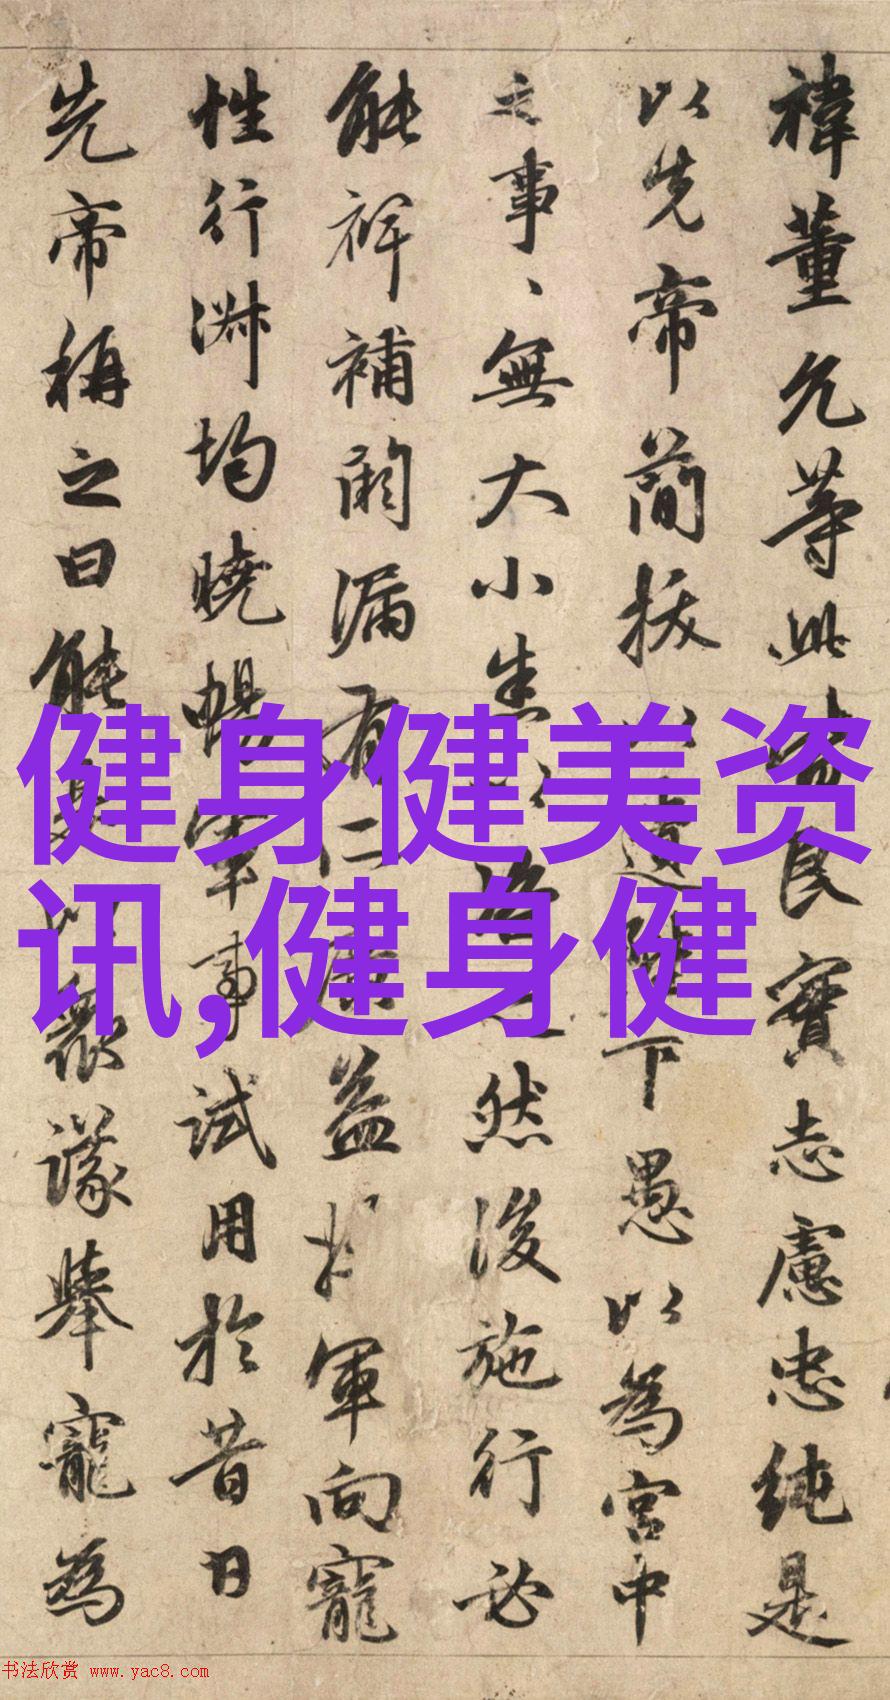 禕董允等此皆良實志慮忠純是
以先帝簡拔以遺陛下愚以為宮中
之事、無大小悉以咨之然後施行必
能裨補闕漏有仁廣益將軍向寵
性行淋均曉暢軍事試用於昔日
先帝稱之曰能是以眾議舉寵為
健身健美资
讯,健身健
书法欣赏 www.yac8.com